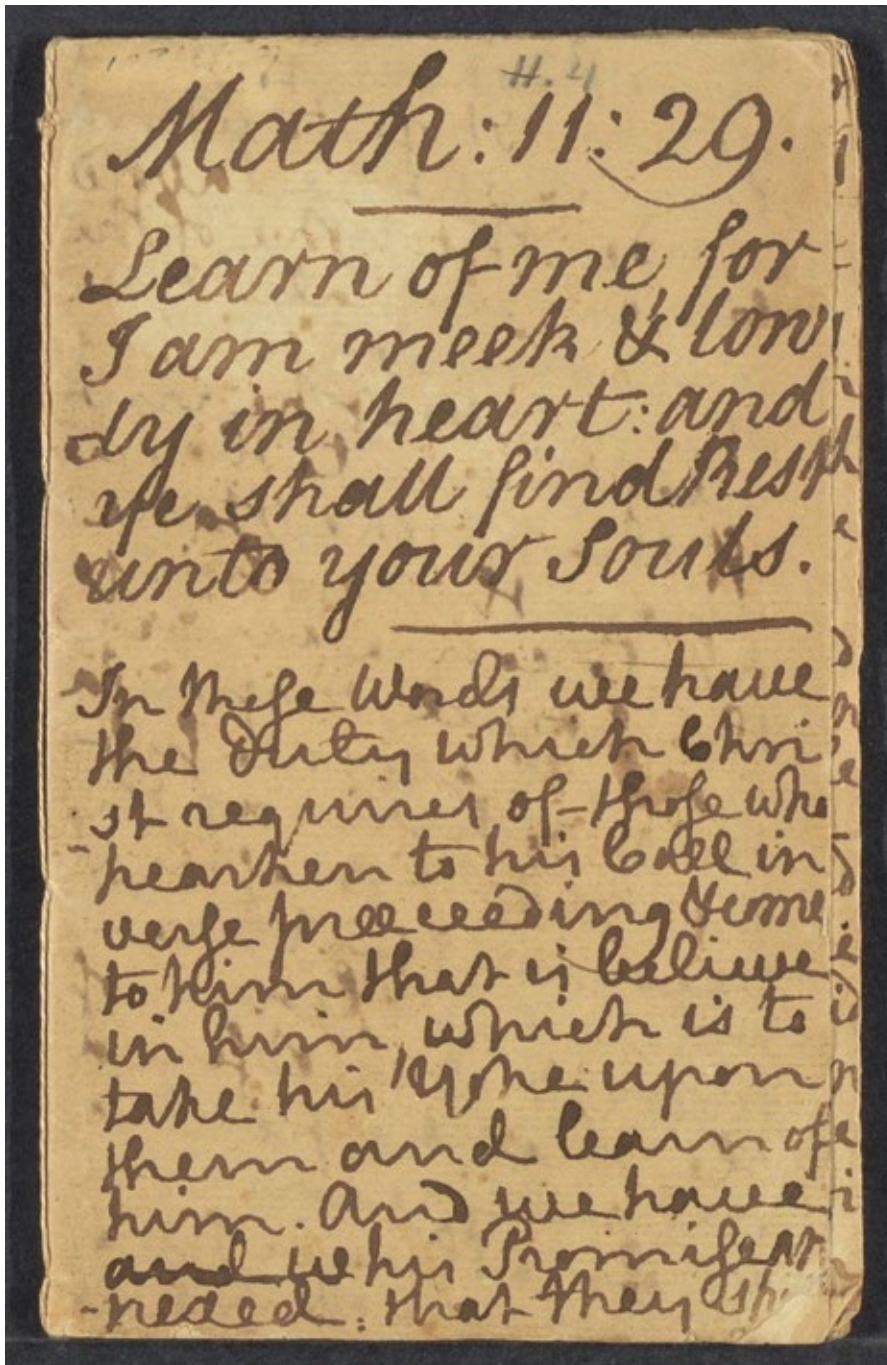 H. 4
Math: 11: 29.
Learn of me, for
I am meek & low
ly in heart: and
ye shall find Rest
unto your Souls.
In these Words we have
the Duty which Chri
st requires of those who
hearken to his Call in
verse preeceeding & come
to him that is believe
in him, which is to
take his Yoke upon
them and learn of
him. And we have
his Promise
that they